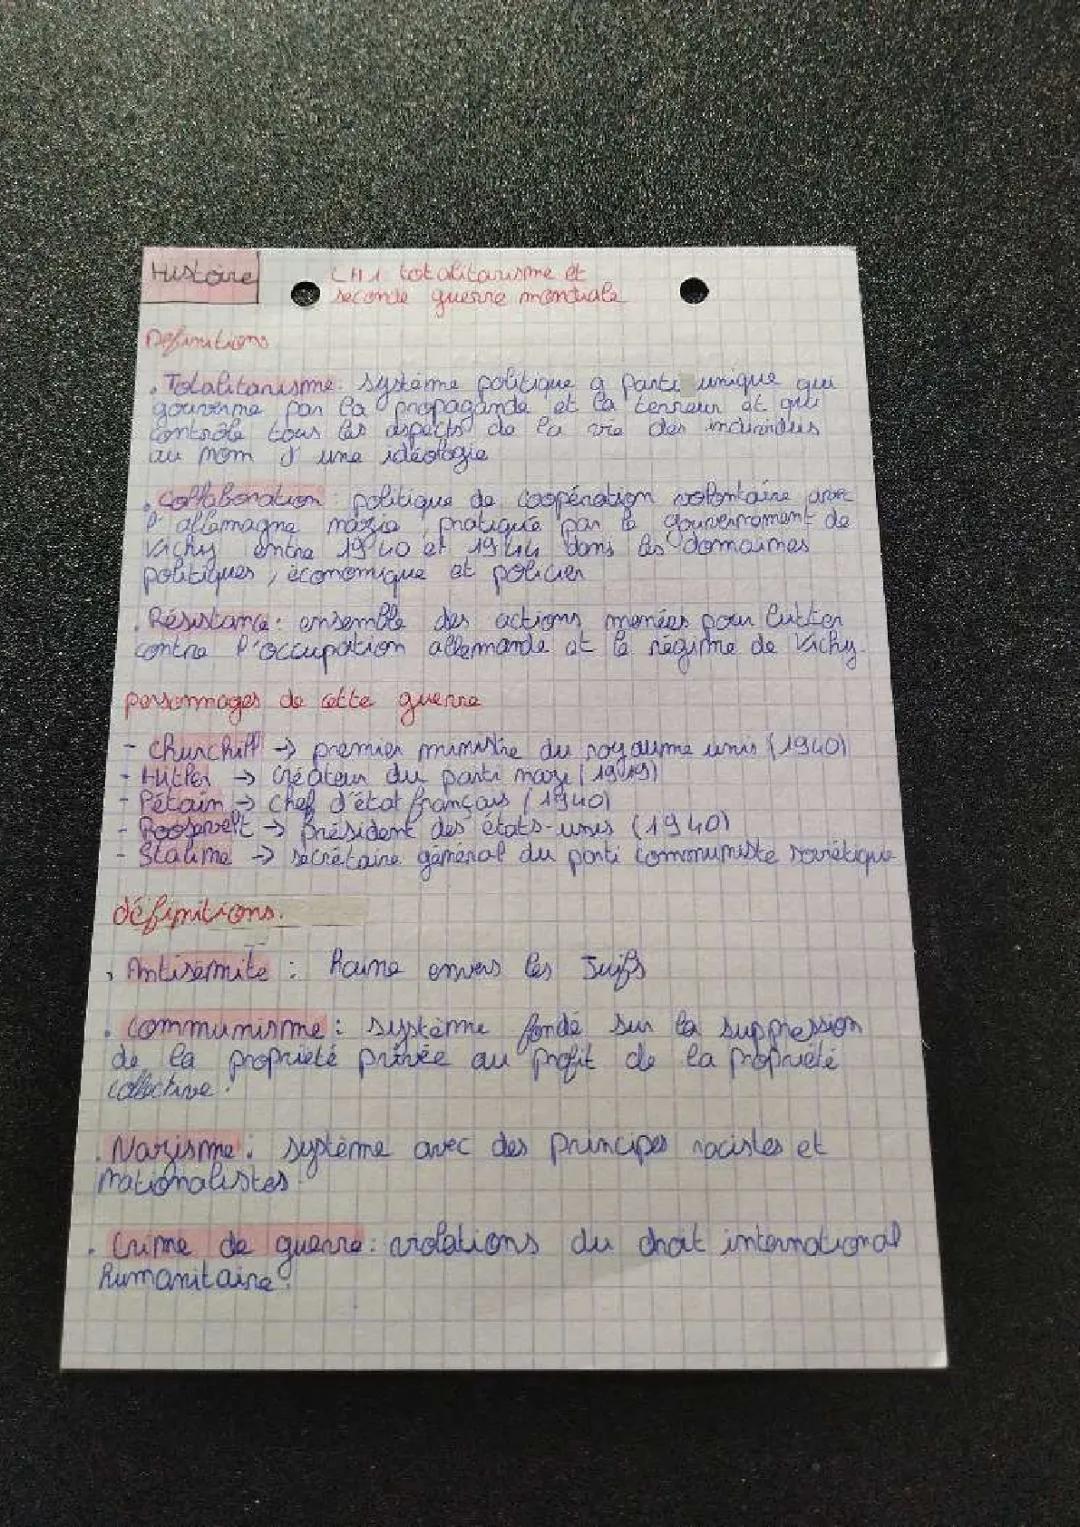 Histoire
CH 1 totalitarisme et
seconde guerre mondiale
Définitions
. Totalitarisme: système politique a parti unique qui
gouverne par la propagande et la terreur et qui
contrôle tous les aspects de la vie des individus
au nom d'une idéologie
. Collaboration : politique de coopération volontaire avec
l'allemagne nazie pratiquée par le gouvernement de
Vichy entre 1940 et 1944 dans les domaines
politiques, économique et policier
. Résistance: ensemble des actions menées pour lutter
contre l'occupation allemande et le régime de Vichy.
personnages de cette guerre
- Churchill → premier ministre du royaume unis (1940)
- Hitler → créateur du parti nazi
- Pétain → chef d'état français (1940)
- Roosevelt → président des états-unis (1940)
- Staline → secrétaire général du parti communiste soviétique
définitions.
. Antisémite : haine envers les Juifs
. Communisme : système fondé sur la suppression
de la propriété privée au profit de la propriété
collective.
. Nazisme : système avec des principes racistes et
nationalistes.
. Crime de guerre : violations du droit international
humanitaire.